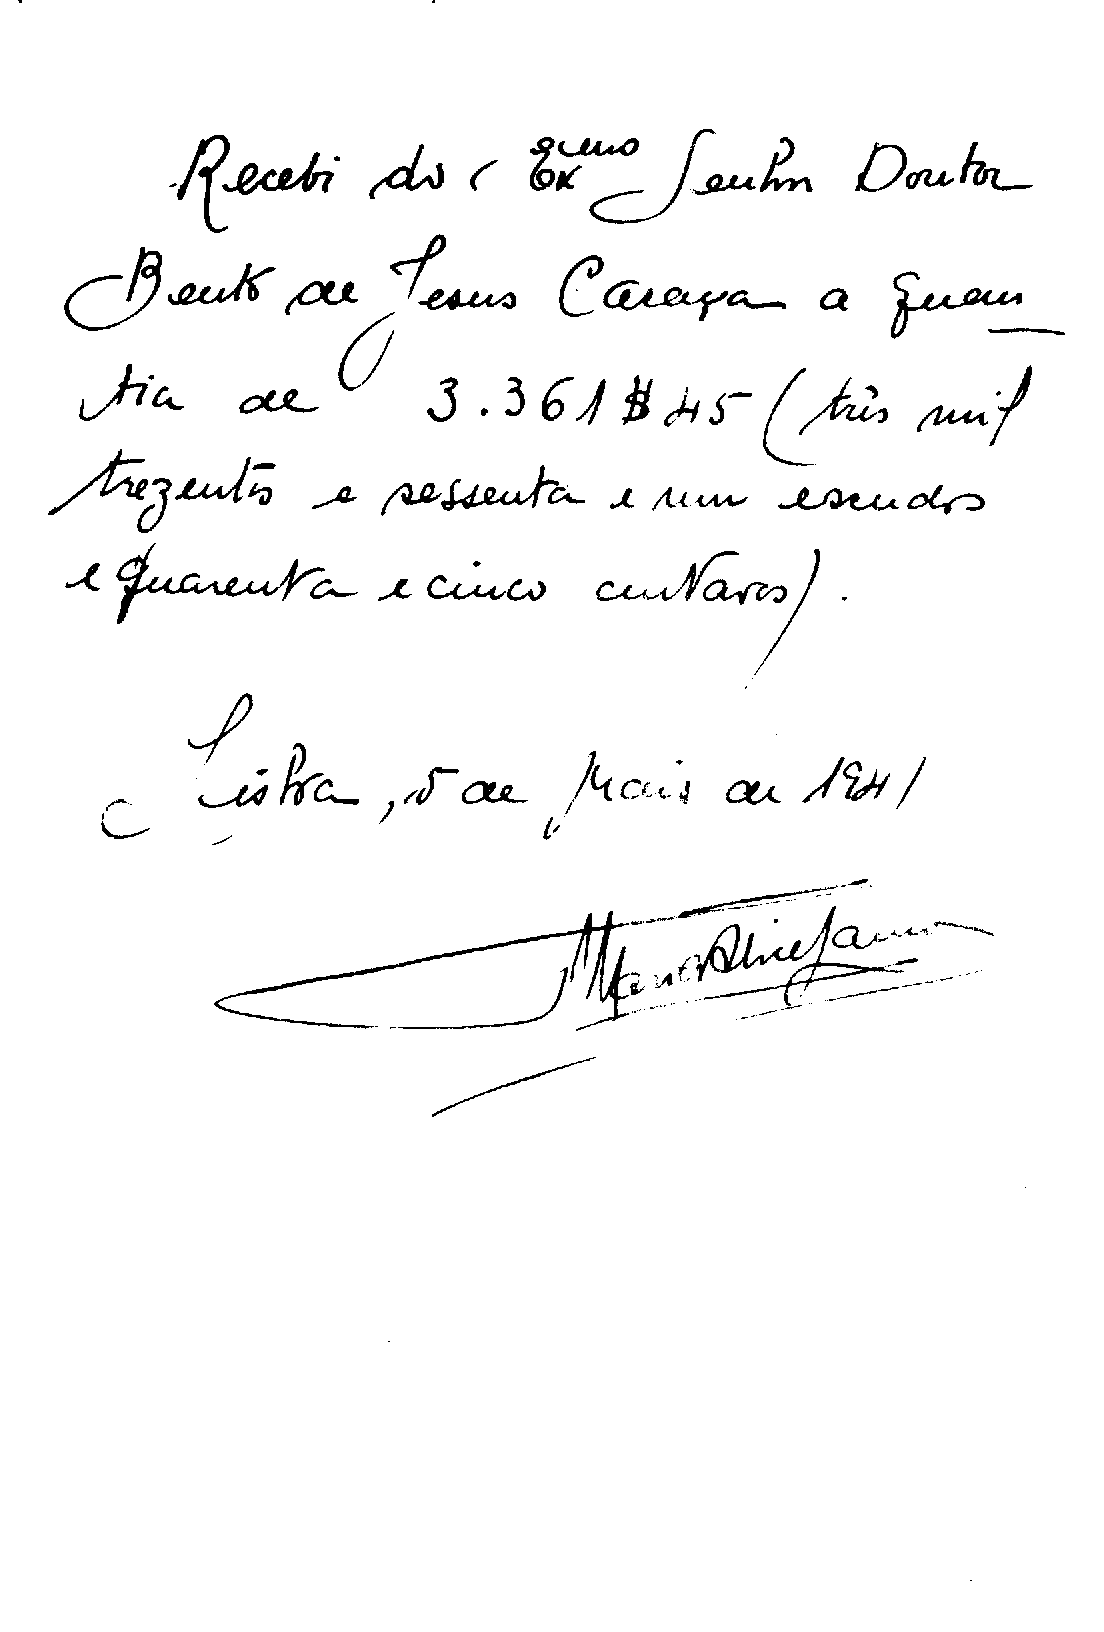 Recebi do Exmo Senhor Doutor
Bento de Jesus Caraça a quan
tia de 3.361$45 (três mil
trezentos e sessenta e um escudos
e quarenta e cinco centavos).
Lisboa, 5 de Maio de 1941